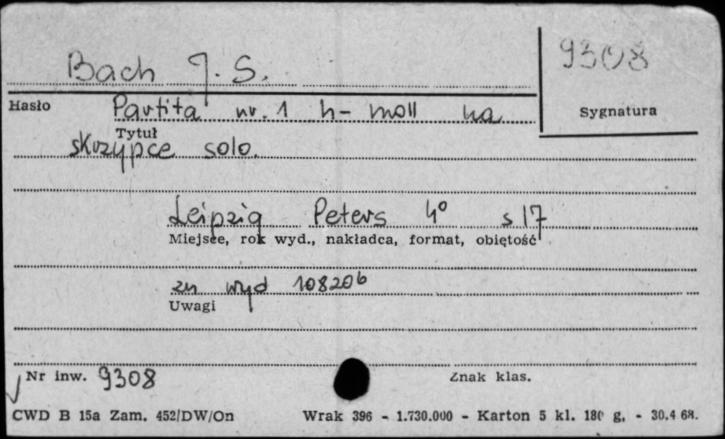 Bach J. S.
9308
Hasło
Partita nr. 1 h-moll na
Sygnatura
Tytuł
skrzypce solo.
Leipzig Peters 4° s 17
Miejsce, rok wyd., nakładca, format, objętość
zn wyd 10820b
Uwagi
Nr inw. 9308
Znak klas.
CWD B 15a Zam. 452/DW/On Wrak 396 - 1.730.000 - Karton 5 kl. 180 g. - 30.4 68.